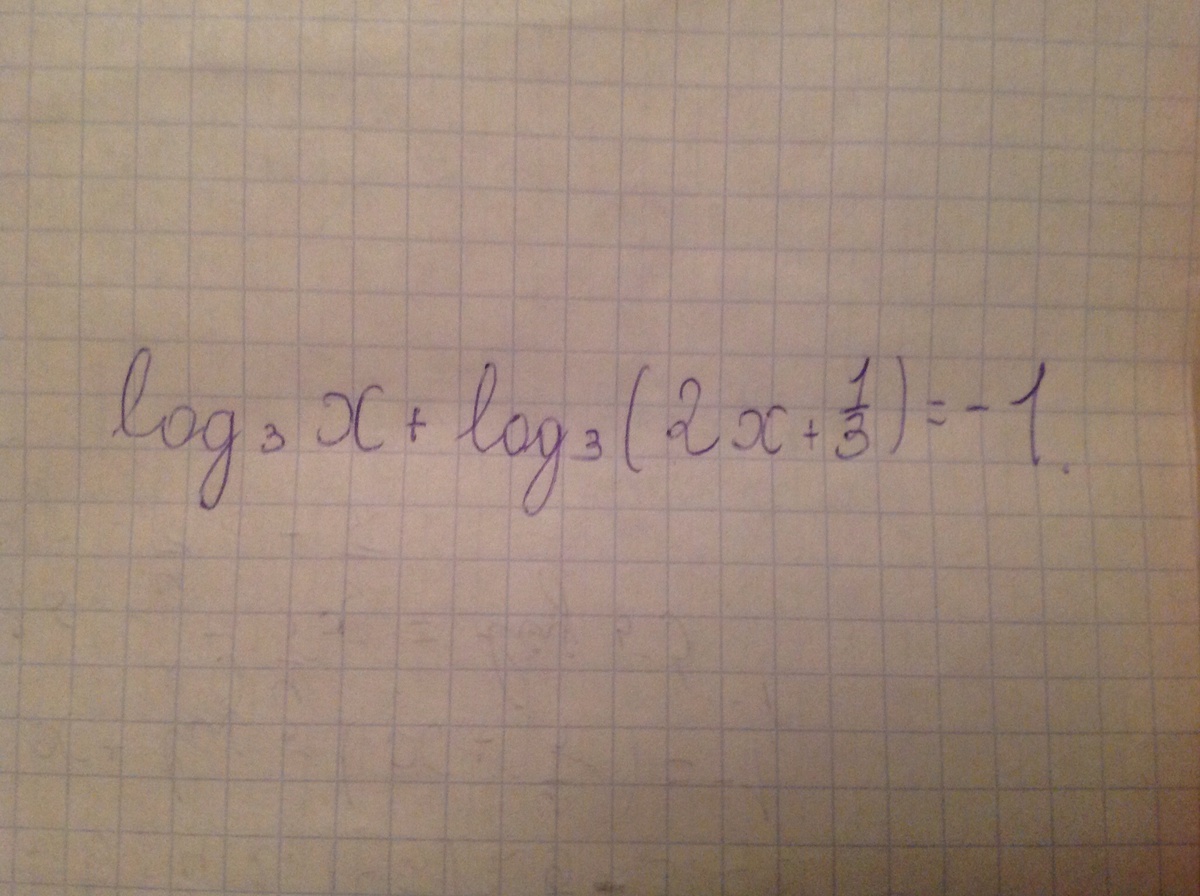 log₃ x + log₃ (2x + 1/3) = -1.